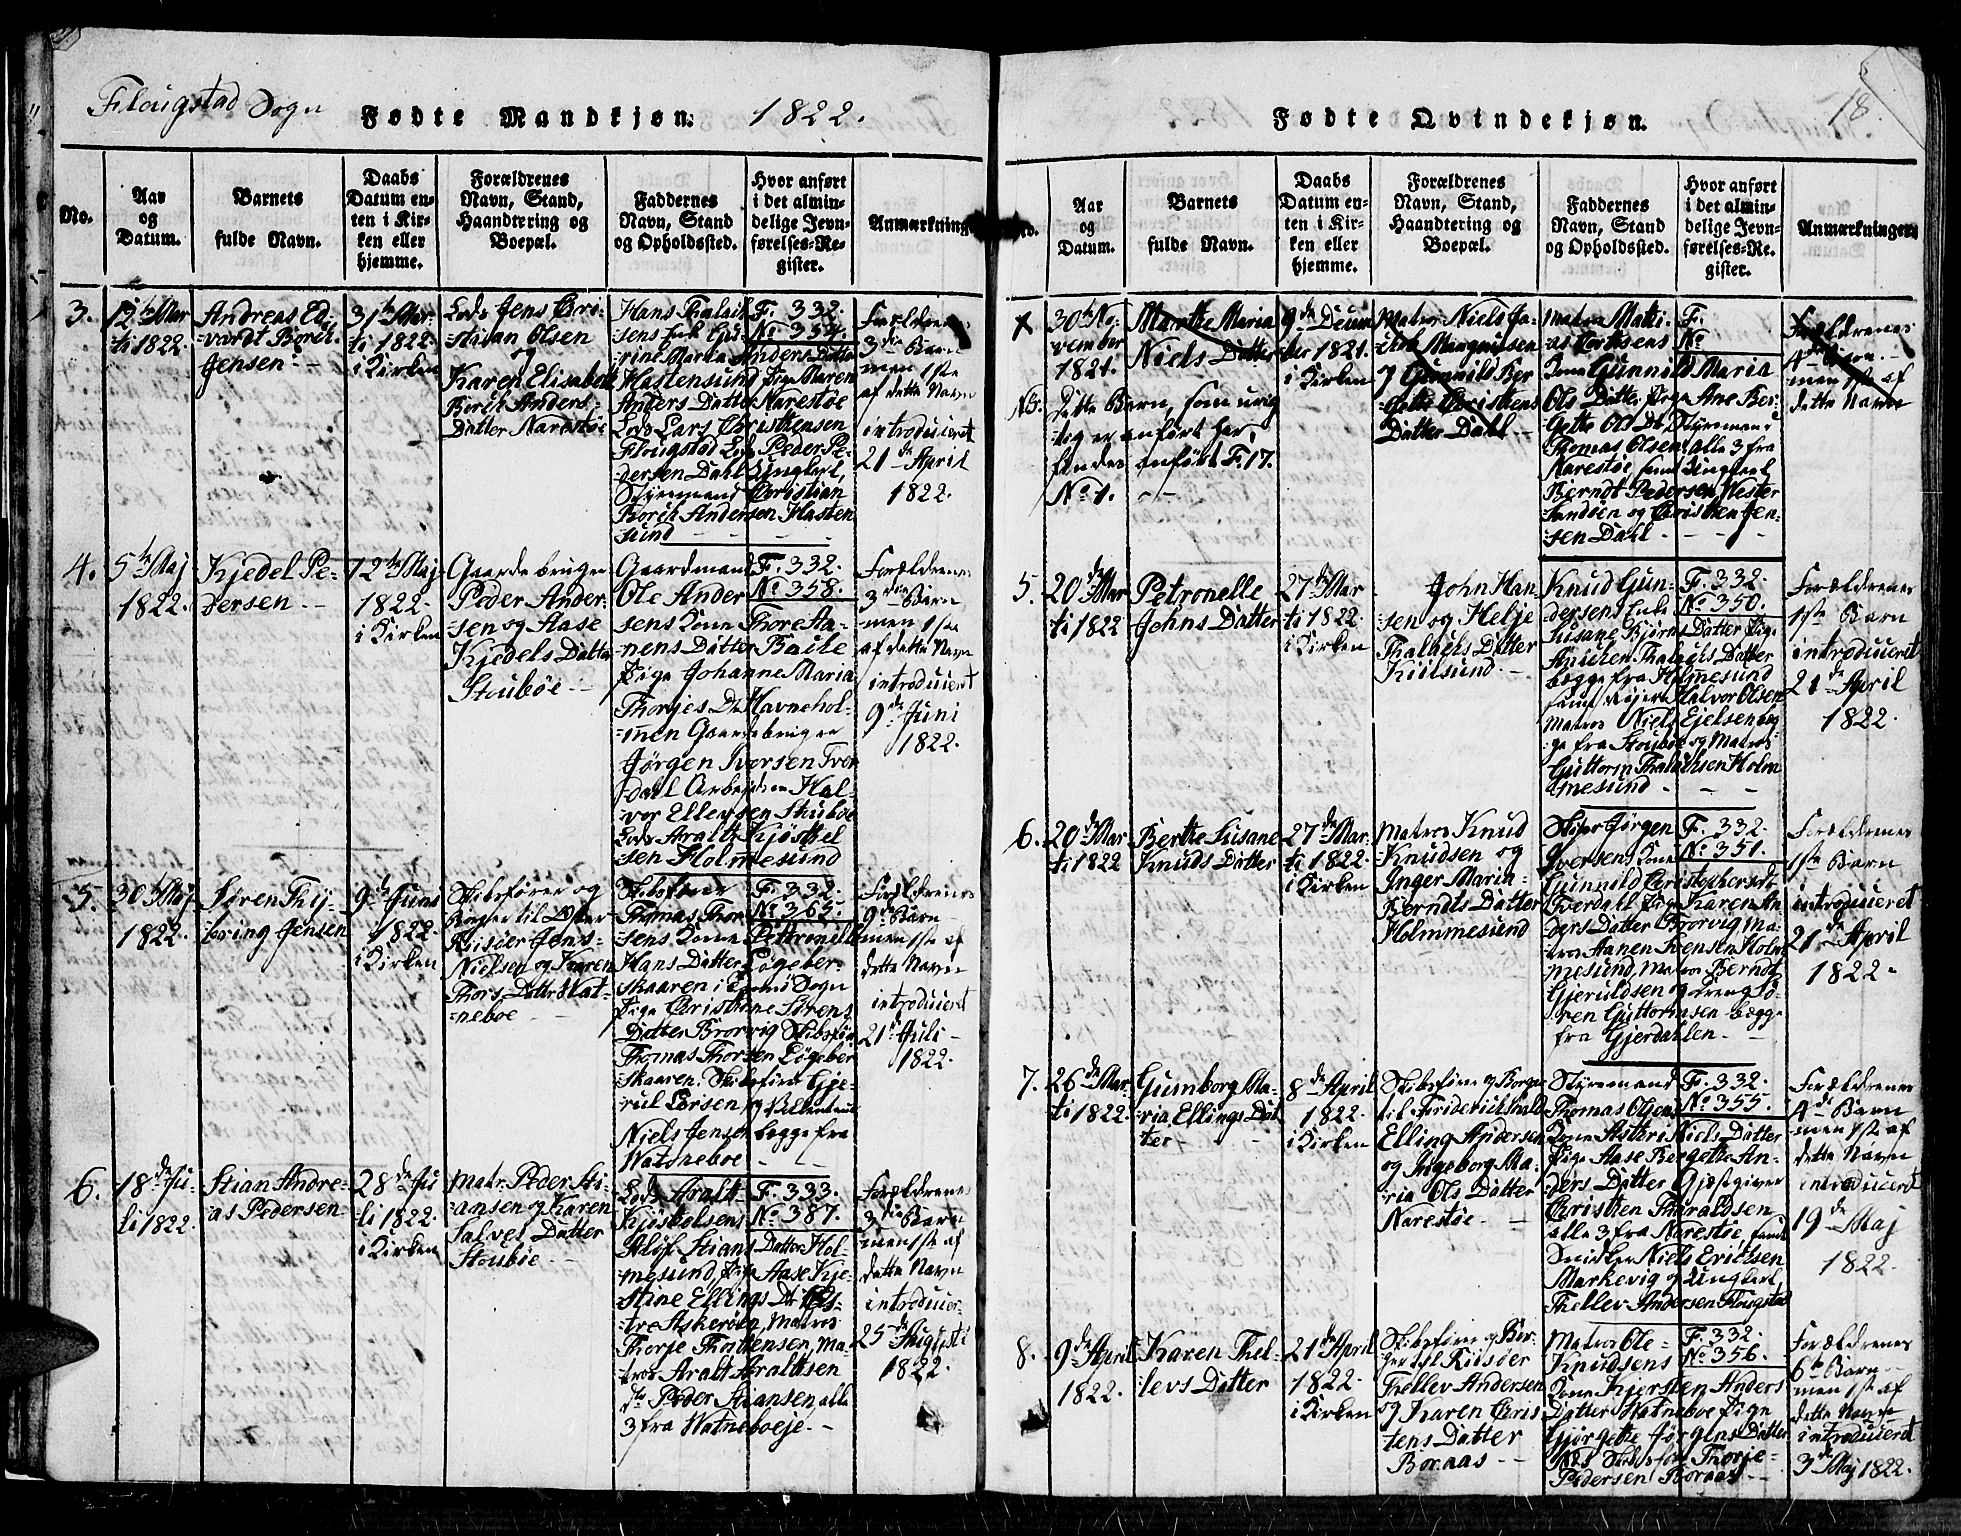 Flougstad Sogn
Fødte Mandkjøn.
1822.
No.
Aar
og
Datum.
Barnets
fulde Navn.
Daabs
Datum en-
ten i Kir-
ken eller
hjemme.
Forældrenes
Navn, Stand,
Haandtering og
Boepæl.
Faddernes
Navn, Stand
og Opholdssted.
Hvor anført
i det almin-
delige Jevn-
førelses-Re-
gister.
Anmærkning
3.
12te Mar
ti 1822.
Andreas Ed-
vardt Borch
Jensen. -
31te Mar
ti 1822.
i Kirken
Lods Jens Chri-
stian Olsen
og
Karen Elisabeth
Borch Anders-
Datter Narestøe
Hans
sens Enk
rine Maria Anders Datter
Hastensund Pige Maren
Anders Datter Narestøe
Lods Lars Christensen
Flougstad Lods Peder Pe-
dersen Dahl Ungkarl,
Styrmand Christian
Borch Andersen Hasten
sund
F. 332.
No 354.
Forældrenes
3die Barn
men 1ste
af dette Navn
introduceret
21de April
1822.
4.
5te Maj
1822.
Kjedel Pe-
dersen. -
12te Maj
1822.
i Kirken
Gaardebruger
Peder Ander-
sen og Aase
Kjedels Datter
Stubøe -
Gaardmand
Ole Ander
sens Kone Thore Aa-
nens Datter
Pige Johanne Maria
Thorjes Dt Havnehol-
men Gaardebruger
Jørgen Iversen Tver
dall Arbejdsm Hal-
vor Ellevsen Stubøe
Lods Aralt Kjøstel
sen Holmesund
F. 332.
No 358.
Forældrenes
3die Barn
men 1ste
af dette Navn
introduceret
9de Juni
1822.
5.
30te Maj
1822.
Søren Thy-
bring Jensen
9de Juni
1822.
i Kirken
Skibsfører og
Borger til Øster
Riisøer Jens
Nielsen og Karen
Thors Datter Wat-
neboe
Skibsfører
Thomas Thor
sens Kone Pettronelle
Hans Datter Løgeber-
skaaren i Sogn
Pige Christine Sørens
Datter Brorvig Skibsfør
Thomas Thorsen Løgeber
skaaren. Skibsfører Gje-
rul Larsen og
Niels Jensen begge fra
Watneboe
F. 332.
No 365.
Forældrenes
9de Barn
men 1ste af
dette Navn
introduceret
21de Juli -
1822.
6.
18de Ju-
li 1822.
Stian Andre-
as Pedersen
28de Ju
li 1822.
i Kirken
Matr. Peder Sti-
ansen og Karen
Salvel Datter
Stoubøe. -
Lods Aralt
Kjøstolsens
Stians Datter Hol-
mesund, Pige Aase Kje-
stine Ellings Dt
tre Askerøen, Matros
Thorje Thortensen, Ma-
tros Aralt Araltsen
do Peder Stiansen alle
3 fra Watneboeje. -
F. 333.
No 387.
Forældrenes
3die Barn
men 1ste af
dette Navn
introducer-
25de Augusti
1822.
18.
Fødte Qvindekjøn.
No.
Aar
og
Datum.
Barnets
fulde Navn.
Daabs
Datum en-
ten i Kir-
ken eller
hjemme.
Forældrenes
Navn, Stand,
Haandtering og
Boepæl.
Faddernes
Navn, Stand
og Opholdssted.
Hvor anført
i det almin-
delige Jevn-
førelses-Re-
gister.
Anmærkninger.
30te No-
vember
1821.
Marthe Maria
Niels Datter
9de Decem
ber 1821.
i Kirken
Matros Niels Ja-
Magnusen
og Gunnild Ber
gette Christens
Datter Dahl. -
Matros Mathi-
as
Kone Gunnild Maria
Ols Datter Pige Ane Ber-
gette Ols Dt, Styrmand
Thomas Olsen alle 3 fra
Narestøe samt Ungkarl
Berndt Pedersen Wester
sandøen og Christen Jen-
sen Dahl -
F.
No
Forældrenes
4de Barn. -
men 1ste af
dette Navn
NB.
Dette Barn, som urig
tig er anført her,
findes anført F. 17.
No 1.
5.
20de Mar
ti 1822
Petronelle
Johns Datter
27de Mar
ti 1822.
i Kirken
John Han
sen og Helje
Thalachs Datter
Kiilsund. -
Knud Gun-
dersens Enke
Susane Bjørns Datter Pige
Anichen Thalachs Datter
begge fra Holmesund
samt Halvor Olsen
Matros Niels Ejelsen beg
ge fra Stoubøe og Matros
Guttorm Thalachsen Holm
mesund -
F. 332.
No 350.
Forældrenes
1ste Barn
introduceret
21de April
1822.
6.
20de Mar
ti 1822
Berthe Susane
Knuds Datter
27de Mar-
ti 1822.
i Kirken
Matros Knud
Knudsen og
Inger Maria-
Berndts Datter
Holmmesund
Skiper Jørgen
Iversens Kone
Gunnild Christophersdt
Tverdall Pige Karen An
ders Datter Brorvig Ma-
tros Aanen Svensen Holm
mesund, Matros Berndt
Gjeruldsen og Dreng Sø-
ren Guttormsen begge
fra Gjerdahlen. -
F. 332.
No 351.
Forældrenes
1ste Barn
introduceret
21de April
1822.
7.
26de Mar-
ti 1822.
Gumborg Ma-
ria Ellings Dat
ter -
8de April
1822.
i Kirken
Skibsfører og Borger
til Frideriksvald
Elling Andersen
og Ingeborg Ma-
ria Ols Datter
Narestøe. -
Styrmand
Thomas Olsens
Kone Astheri Niels Datter
Pige Aase Bergette An-
ders Datter Gjæstgiver
Christen Tharaldsen
alle 3 fra Narestøe, samt
Snidker Niels Erichsen
Markevig og Ungkarl,
Thellev Andersen Flougstad
F. 332.
No 355.
Forældrenes
4de Barn
men 1ste af
dette Navn
introduceret
19de Maj
1822.
8.
9de April
1822.
Karen Thel-
levs Datter
21de April
1822.
i Kirken
Skibsfører og Bor-
ger til Riisøer
Thellev Andersen
og Karen Chris
tens Datter
Boraas -
Matros Ole
Knudsens
Kone Kjersten Anders
Datter Watneboe Pige
Gjorgette Jørgens Datter
Skibsfør Thorje-
Pedersen Boraas -
F. 332.
No 356.
Forældrenes
6te Barn
men 1ste af
dette Navn
introduceret
3de Maj 1822.